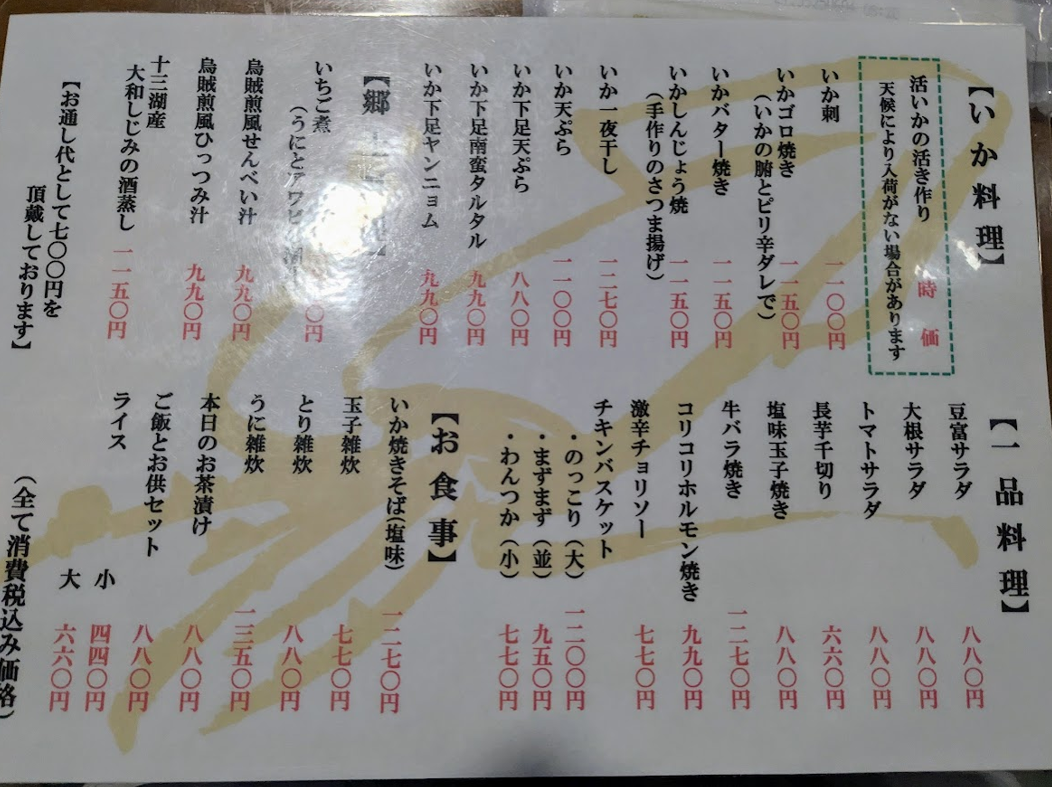 【いか料理】
活いかの活き作り 時価
天候により入荷がない場合があります
いか刺 一一〇〇円
いかゴロ焼き 一一五〇円
（いかの腑とピリ辛ダレで）
いかバター焼き 一一五〇円
いかしんじょう焼 一一五〇円
（手作りのさつま揚げ）
いか一夜干し 一二七〇円
いか天ぷら 一一〇〇円
いか下足天ぷら 八八〇円
いか下足南蛮タルタル 九九〇円
いか下足ヤンニョム 九九〇円
【郷
いちご煮 〇円
（うにとアワビ
烏賊煎風せんべい汁 九九〇円
烏賊煎風ひっつみ汁 九九〇円
十三湖産
大和しじみの酒蒸し 一一五〇円
【お通し代として七〇〇円を
頂戴しております】
【一品料理】
豆富サラダ 八八〇円
大根サラダ 八八〇円
トマトサラダ 八八〇円
長芋千切り 六六〇円
塩味玉子焼き 八八〇円
牛バラ焼き 一二七〇円
コリコリホルモン焼き 九九〇円
激辛チョリソー 七七〇円
チキンバスケット
・のっこり（大） 一二〇〇円
・まずまず（並） 九五〇円
・わんつか（小） 七七〇円
【お食事】
いか焼きそば（塩味） 一二七〇円
玉子雑炊 七七〇円
とり雑炊 八八〇円
うに雑炊 一三五〇円
本日のお茶漬け 八八〇円
ご飯とお供セット 八八〇円
ライス 小 四四〇円
大 六六〇円
（全て消費税込み価格）